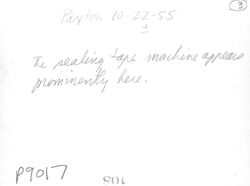 3
Paxton 10-22-55
The sealing tape machine appears
prominently here.
P9017